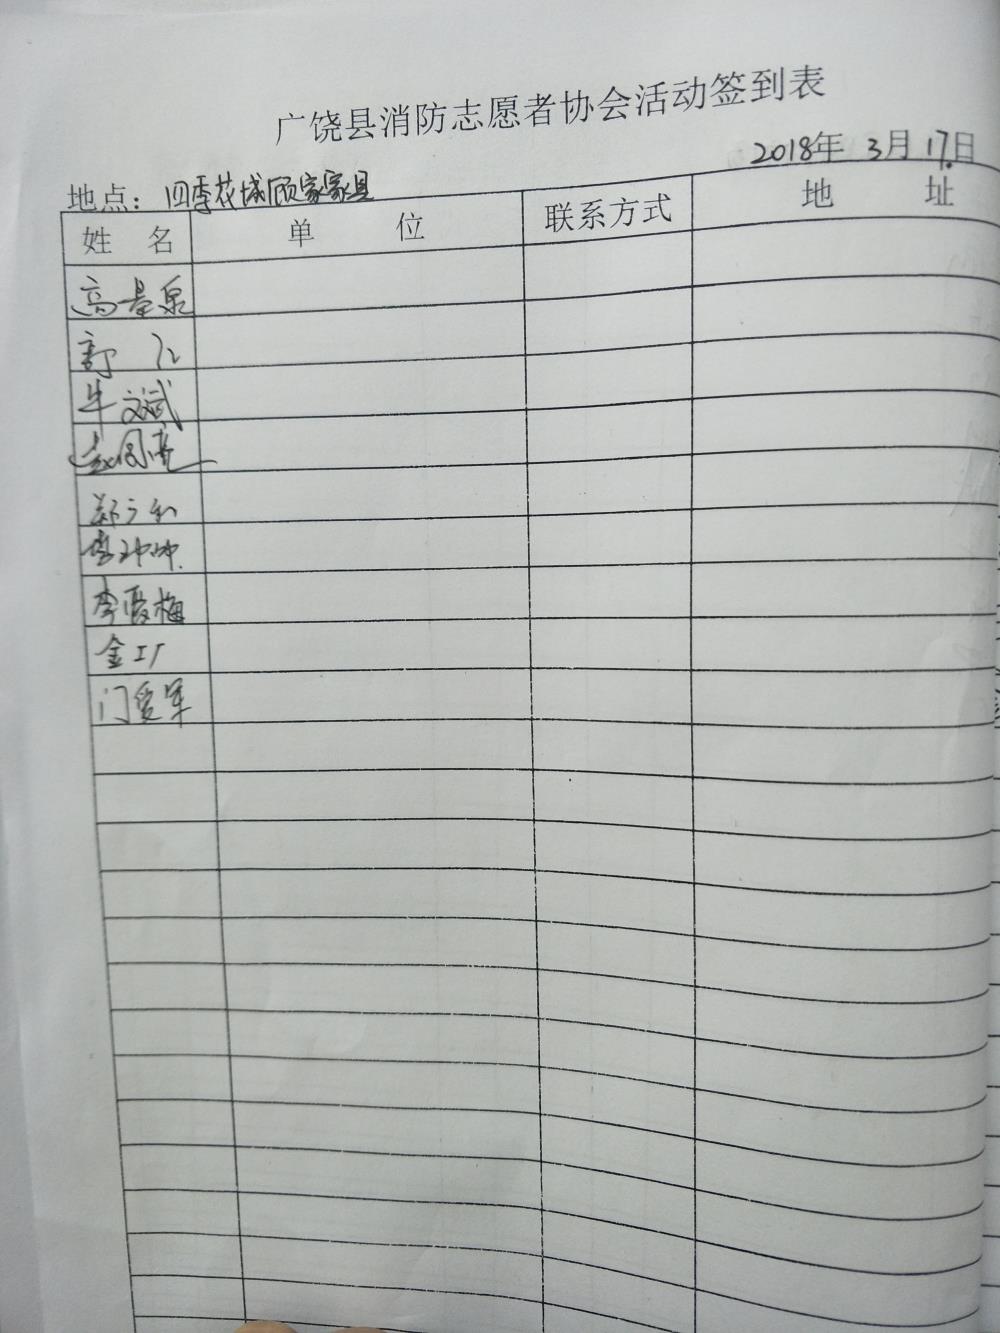 广饶县消防志愿者协会活动签到表
2018年 3月 17日
地点：四季花城顾家家具
姓 名 单 位 联系方式 地 址
高景泉
牛文斌
郑立和
李爱梅
金工厂
门爱军